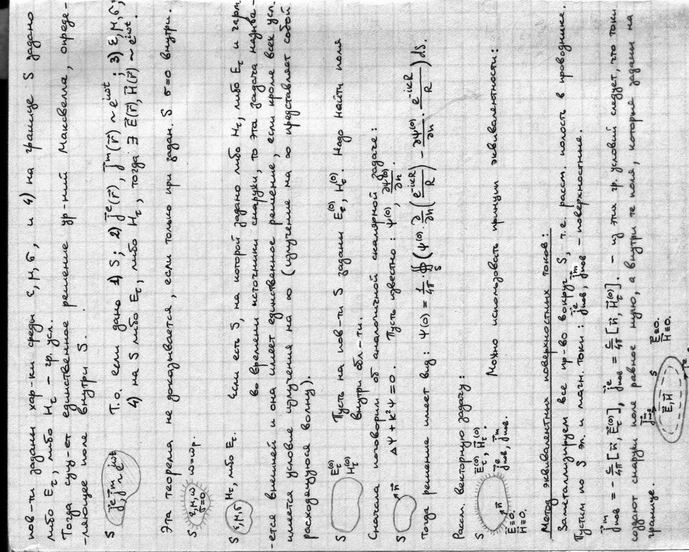 пов-ти заданы хар-ки среды ε, μ, σ, и 4) на границе S задано
либо Eτ, либо Hτ – гр. усл.
Тогда сущ-ет единственное решение ур-ний Максвелла, опреде-
-ляющее поле внутри S.
S j^e, j^m ~ e^{iωt} Т.о. если дано 1) S; 2) j^e(r), j^m(r) ~ e^{iωt}; 3) ε, μ, σ;
4) на S либо Eτ, либо Hτ, тогда ∃ E(r), H(r) ~ e^{iωt}
Эта теорема не доказывается, если только при задан. S σ=0 внутри.
S ε, μ, ω σ=0
S ε, μ, σ Hτ, либо Eτ. Если есть S, на которой задано либо Hτ, либо Eτ и гарм.
во времени источники снаружи, то эта задача назыв-
-ется внешней и она имеет единственное решение, если кроме всех усл.
имеется условие излучения на ∞ (излучение на ∞ представляет собой
расходящуюся волну).
S Eτ^(0) Hτ^(0) Пусть на пов-ти S заданы Eτ^(0), Hτ^(0). Надо найти поля
внутри обл-ти.
Сначала поговорим об аналогичной скалярной задаче:
S n ΔΨ + k²Ψ = 0. Пусть известно: Ψ^(0), ∂Ψ^(0)/∂n.
Тогда решение имеет вид: Ψ(0) = 1/4π ∯_S (Ψ^(0) ∂/∂n (e^{-ikR}/R) − ∂Ψ^(0)/∂n · e^{-ikR}/R) dS.
Рассм. векторную задачу:
S Eτ^(0), Hτ^(0). n j^e_пов, j^m_пов E=0. H=0. Можно использовать принцип эквивалентности:
Метод эквивалентных поверхностных токов:
Заметаллизируем все пр-во вокруг S, т.е. рассм. полость в проводнике.
Пустим по S эл. и магн. токи: j^e_пов, j^m_пов – поверхностные.
j^m_пов = −c/4π [n, Eτ^(0)], j^e_пов = c/4π [n, Hτ^(0)]. – из этих гр. условий следует, что токи
создают снаружи поле равное нулю, а внутри те поля, которые заданы на
границе. S E=0. H=0. E, H